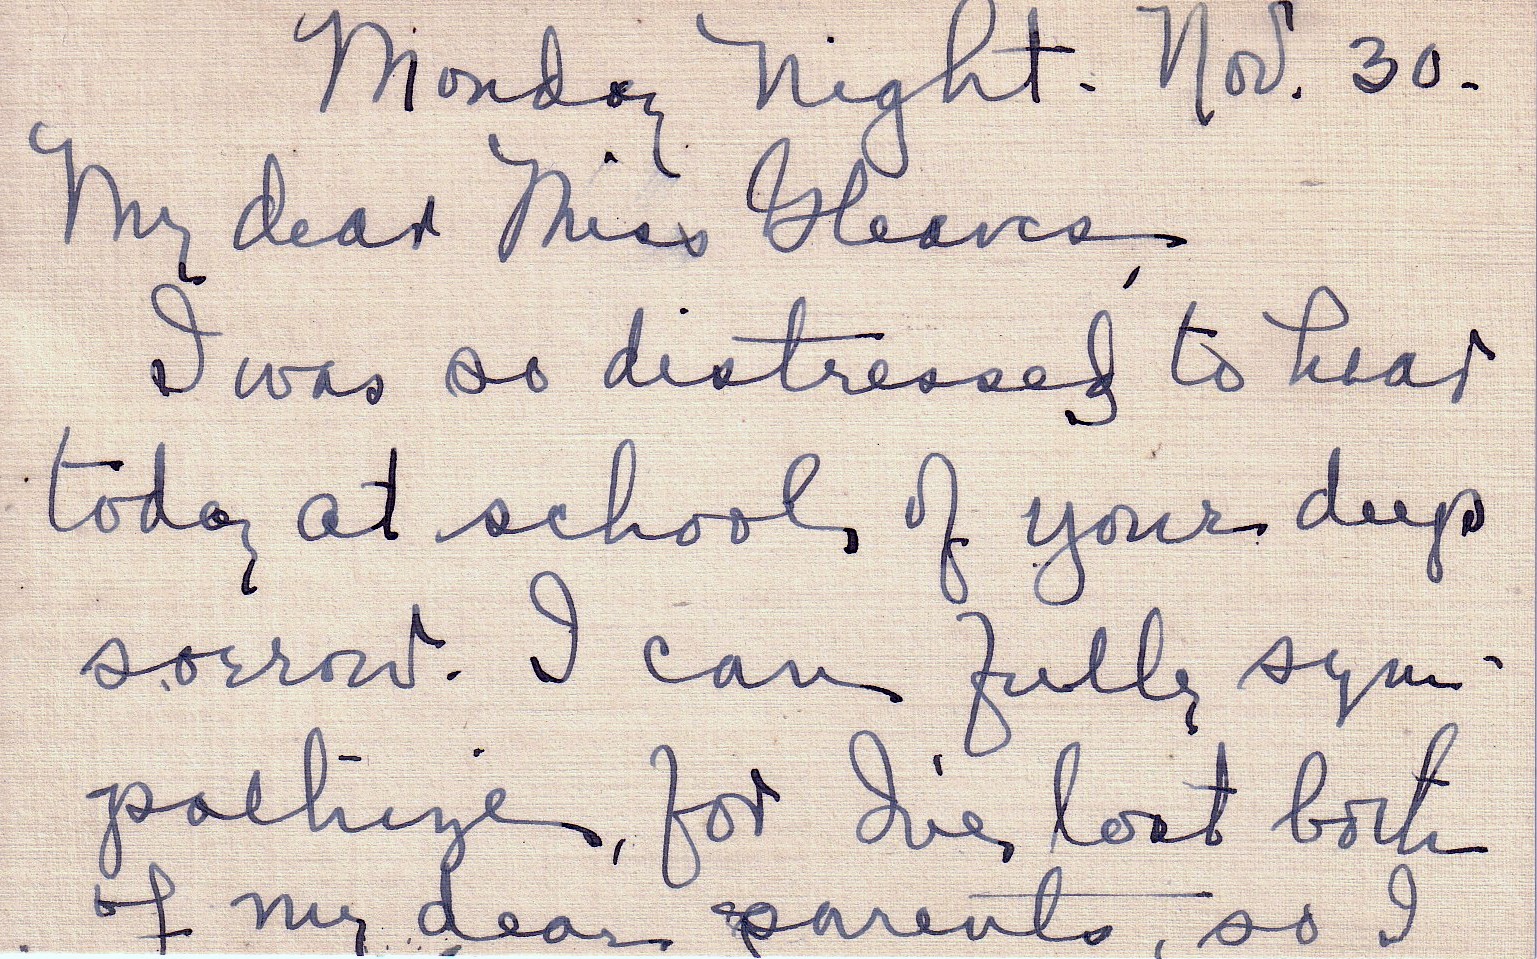 Monday Night. Nov. 30.
My dear Miss Gleaves,
I was so distressed to hear
today at school, of your deep
sorrow. I can fully sym-
pathize, for I've lost both
of my dear parents, so I